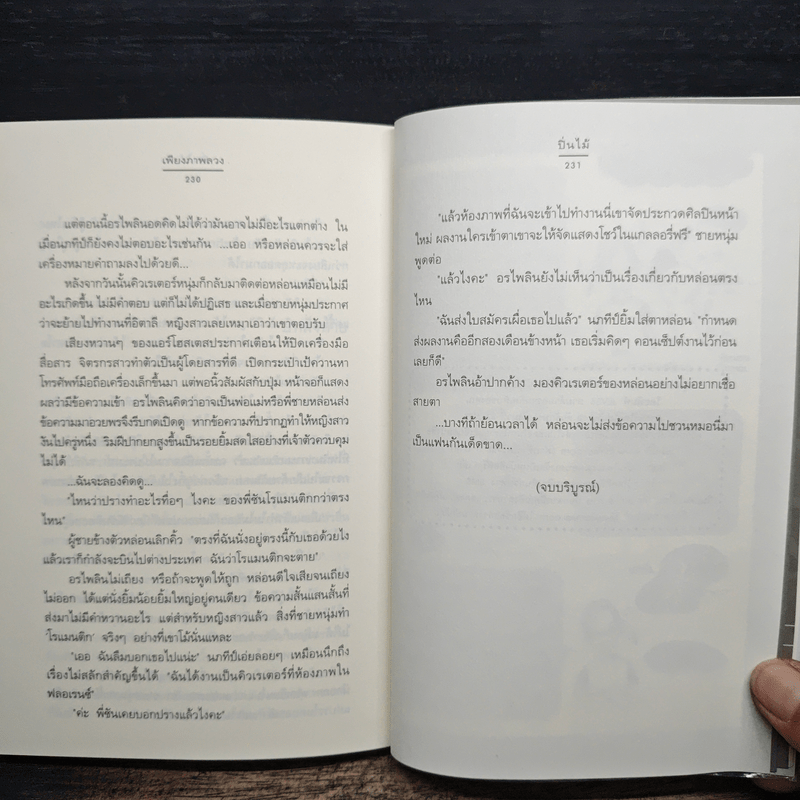 เพียงภาพลวง
230
แต่ตอนนี้อรไพลินอดคิดไม่ได้ว่ามันอาจไม่มีอะไรแตกต่าง ใน
เมื่อนภทีป์ก็ยังคงไม่ตอบอะไรเช่นกัน ...เออ หรือหล่อนควรจะใส่
เครื่องหมายคำถามลงไปด้วยดี...
หลังจากวันนั้นคิวเรเตอร์หนุ่มก็กลับมาติดต่อหล่อนเหมือนไม่มี
อะไรเกิดขึ้น ไม่มีคำตอบ แต่ก็ไม่ได้ปฏิเสธ และเมื่อชายหนุ่มประกาศ
ว่าจะย้ายไปทำงานที่อิตาลี หญิงสาวเลยเหมาเอาว่าเขาตอบรับ
เสียงหวานๆ ของแอร์โฮสเตสประกาศเตือนให้ปิดเครื่องมือ
สื่อสาร จิตรกรสาวทำตัวเป็นผู้โดยสารที่ดี เปิดกระเป๋าเป้ควานหา
โทรศัพท์มือถือเครื่องเล็กขึ้นมา แต่พอนิ้วสัมผัสกับปุ่ม หน้าจอก็แสดง
ผลว่ามีข้อความเข้า อรไพลินคิดว่าอาจเป็นพ่อแม่หรือพี่ชายหล่อนส่ง
ข้อความมาอวยพรจึงรีบกดเปิดดู หากข้อความที่ปรากฏทำให้หญิงสาว
งันไปครู่หนึ่ง ริมฝีปากยกสูงขึ้นเป็นรอยยิ้มสดใสอย่างที่เจ้าตัวควบคุม
ไม่ได้
...ฉันจะลองคิดดู...
"ไหนว่าปรางทำอะไรที่อๆ ไงคะ ของพี่ซันโรแมนติกกว่าตรง
ไหน"
ผู้ชายข้างตัวหล่อนเลิกคิ้ว "ตรงที่ฉันนั่งอยู่ตรงนี้กับเธอด้วยไง
แล้วเราก็กำลังจะบินไปต่างประเทศ ฉันว่าโรแมนติกจะตาย"
อรไพลินไม่เถียง หรือถ้าจะพูดให้ถูก หล่อนดีใจเสียจนเถียง
ไม่ออก ได้แต่นั่งยิ้มน้อยยิ้มใหญ่อยู่คนเดียว ข้อความสั้นแสนสั้นที่
ส่งมาไม่มีคำหวานอะไร แต่สำหรับหญิงสาวแล้ว สิ่งที่ชายหนุ่มทำ
'โรแมนติก' จริงๆ อย่างที่เขาโม้นั่นแหละ
"เออ ฉันลืมบอกเธอไปแน่ะ" นภทีป์เอ่ยลอยๆ เหมือนนึกถึง
เรื่องไม่สลักสำคัญขึ้นได้ "ฉันได้งานเป็นคิวเรเตอร์ที่ห้องภาพใน
ฟลอเรนซ์"
"ค่ะ พี่ซันเคยบอกปรางแล้วไงคะ"
ปิ่นไม้
231
"แล้วห้องภาพที่ฉันจะเข้าไปทำงานนี่เขาจัดประกวดศิลปินหน้า
ใหม่ ผลงานใครเข้าตาเขาจะให้จัดแสดงโชว์ในแกลลอรี่ฟรี" ชายหนุ่ม
พูดต่อ
"แล้วไงคะ" อรไพลินยังไม่เห็นว่าเป็นเรื่องเกี่ยวกับหล่อนตรง
ไหน
"ฉันส่งใบสมัครเผื่อเธอไปแล้ว" นภทีป์ยิ้มใส่ตาหล่อน "กำหนด
ส่งผลงานคืออีกสองเดือนข้างหน้า เธอเริ่มคิดๆ คอนเซ็ปต์งานไว้ก่อน
เลยก็ดี"
อรไพลินอ้าปากค้าง มองคิวเรเตอร์ของหล่อนอย่างไม่อยากเชื่อ
สายตา
...บางทีถ้าย้อนเวลาได้ หล่อนจะไม่ส่งข้อความไปชวนหมอนี่มา
เป็นแฟนกันเด็ดขาด...
(จบบริบูรณ์)